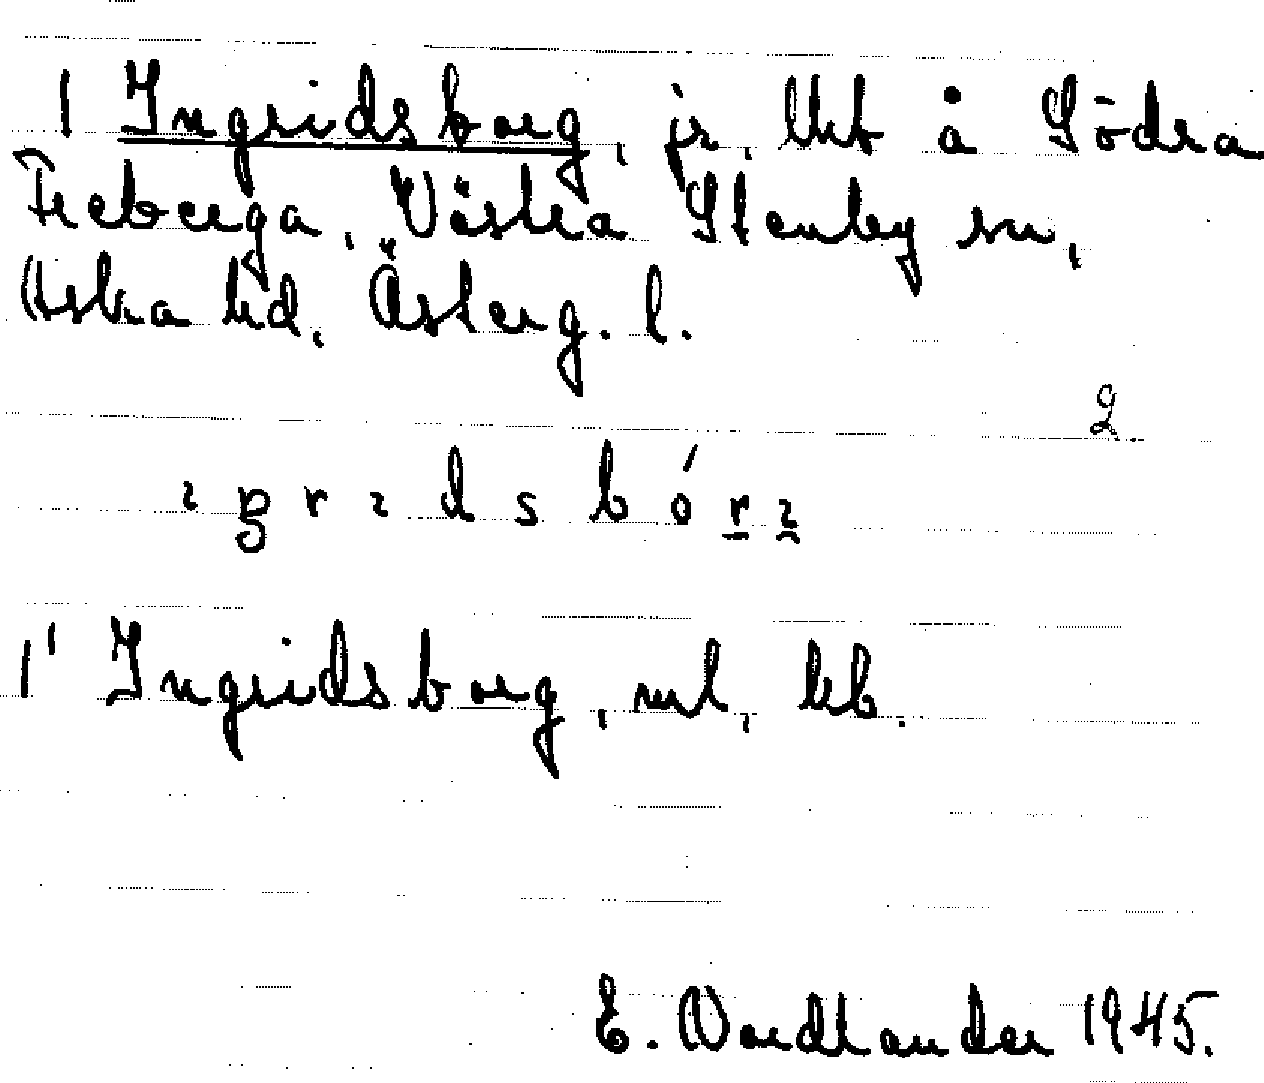 1 Ingridsborg, jr, lht å Södra
Freberga, Västra Stenby sn,
Aska hd, Österg. l.
2
ı g r ı d s b ó r
1' Ingridsborg, ml, kb.
E. Nordlander 1945.